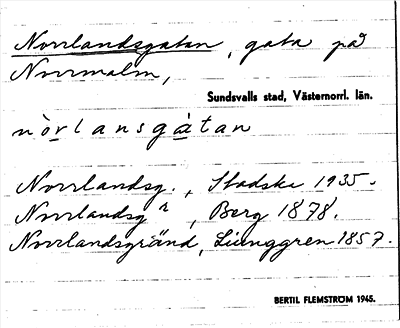 Norrlandsgatan, gata på
Norrmalm,
Sundsvalls stad, Västernorrl. län.
nòrlansgàtan
Norrlandsg., Stadske 1935.
Norrlandsg n, Berg 1878.
Norrlandsgränd, Ljunggren 1857.
BERTIL FLEMSTRÖM 1945.